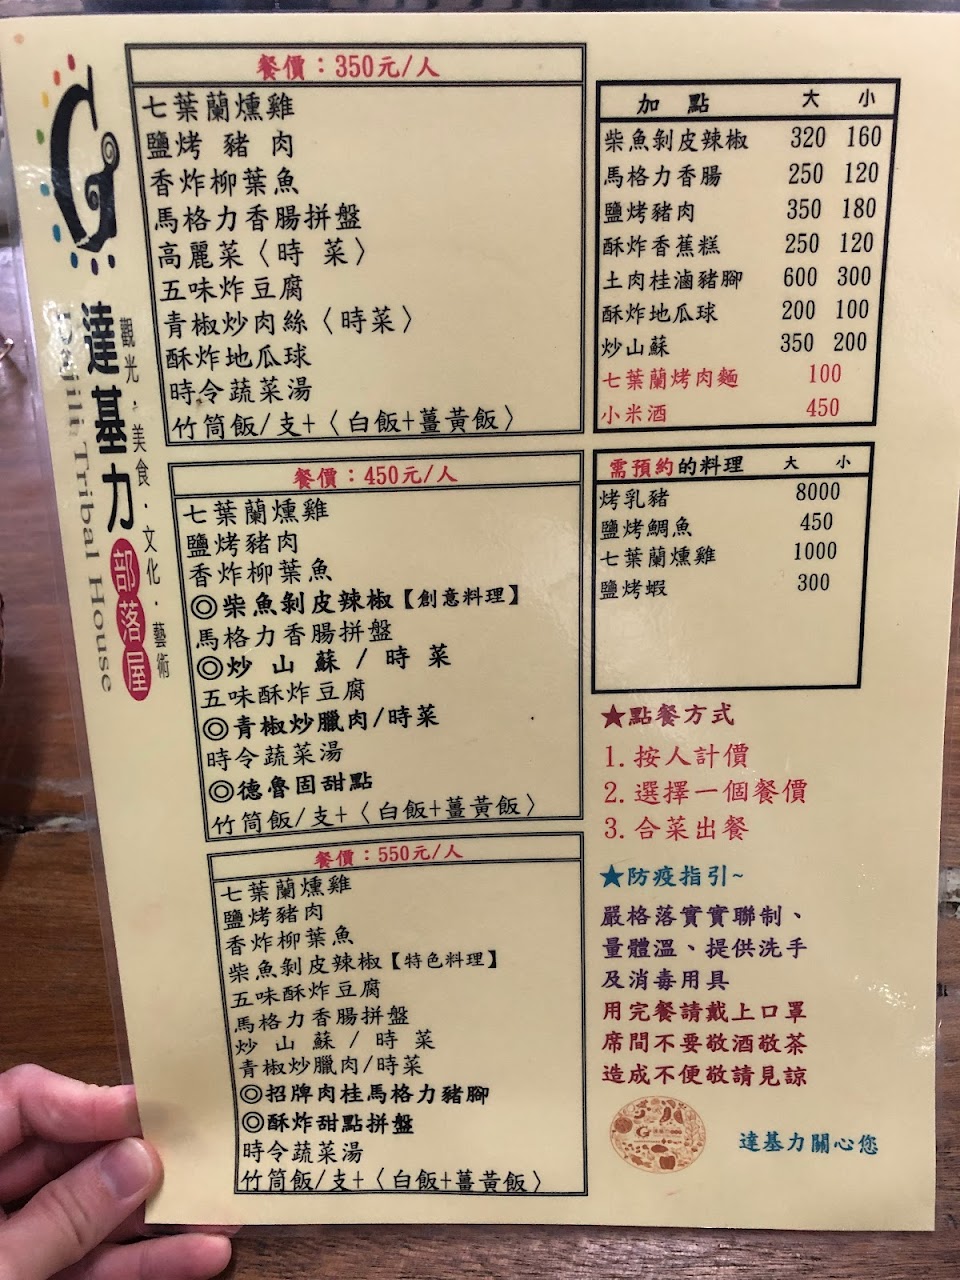 達基力部落屋
觀光·美食·文化·藝術
Dajili Tribal House
餐價：350元/人
七葉蘭燻雞
鹽烤 豬 肉
香炸柳葉魚
馬格力香腸拼盤
高麗菜〈時 菜〉
五味炸豆腐
青椒炒肉絲〈時菜〉
酥炸地瓜球
時令蔬菜湯
竹筒飯/支+〈白飯+薑黃飯〉
餐價：450元/人
七葉蘭燻雞
鹽烤豬肉
香炸柳葉魚
◎柴魚剝皮辣椒【創意料理】
馬格力香腸拼盤
◎炒 山 蘇 / 時 菜
五味酥炸豆腐
◎青椒炒臘肉/時菜
時令蔬菜湯
◎德魯固甜點
竹筒飯/支+〈白飯+薑黃飯〉
餐價：550元/人
七葉蘭燻雞
鹽烤豬肉
香炸柳葉魚
柴魚剝皮辣椒【特色料理】
五味酥炸豆腐
馬格力香腸拼盤
炒 山 蘇 / 時 菜
青椒炒臘肉/時菜
◎招牌肉桂馬格力豬腳
◎酥炸甜點拼盤
時令蔬菜湯
竹筒飯/支+〈白飯+薑黃飯〉
加 點 大 小
柴魚剝皮辣椒 320 160
馬格力香腸 250 120
鹽烤豬肉 350 180
酥炸香蕉糕 250 120
土肉桂滷豬腳 600 300
酥炸地瓜球 200 100
炒山蘇 350 200
七葉蘭烤肉麵 100
小米酒 450
需預約的料理 大 小
烤乳豬 8000
鹽烤鯛魚 450
七葉蘭燻雞 1000
鹽烤蝦 300
★點餐方式
1. 按人計價
2. 選擇一個餐價
3. 合菜出餐
★防疫指引~
嚴格落實實聯制、
量體溫、提供洗手
及消毒用具
用完餐請戴上口罩
席間不要敬酒敬茶
造成不便敬請見諒
達基力關心您